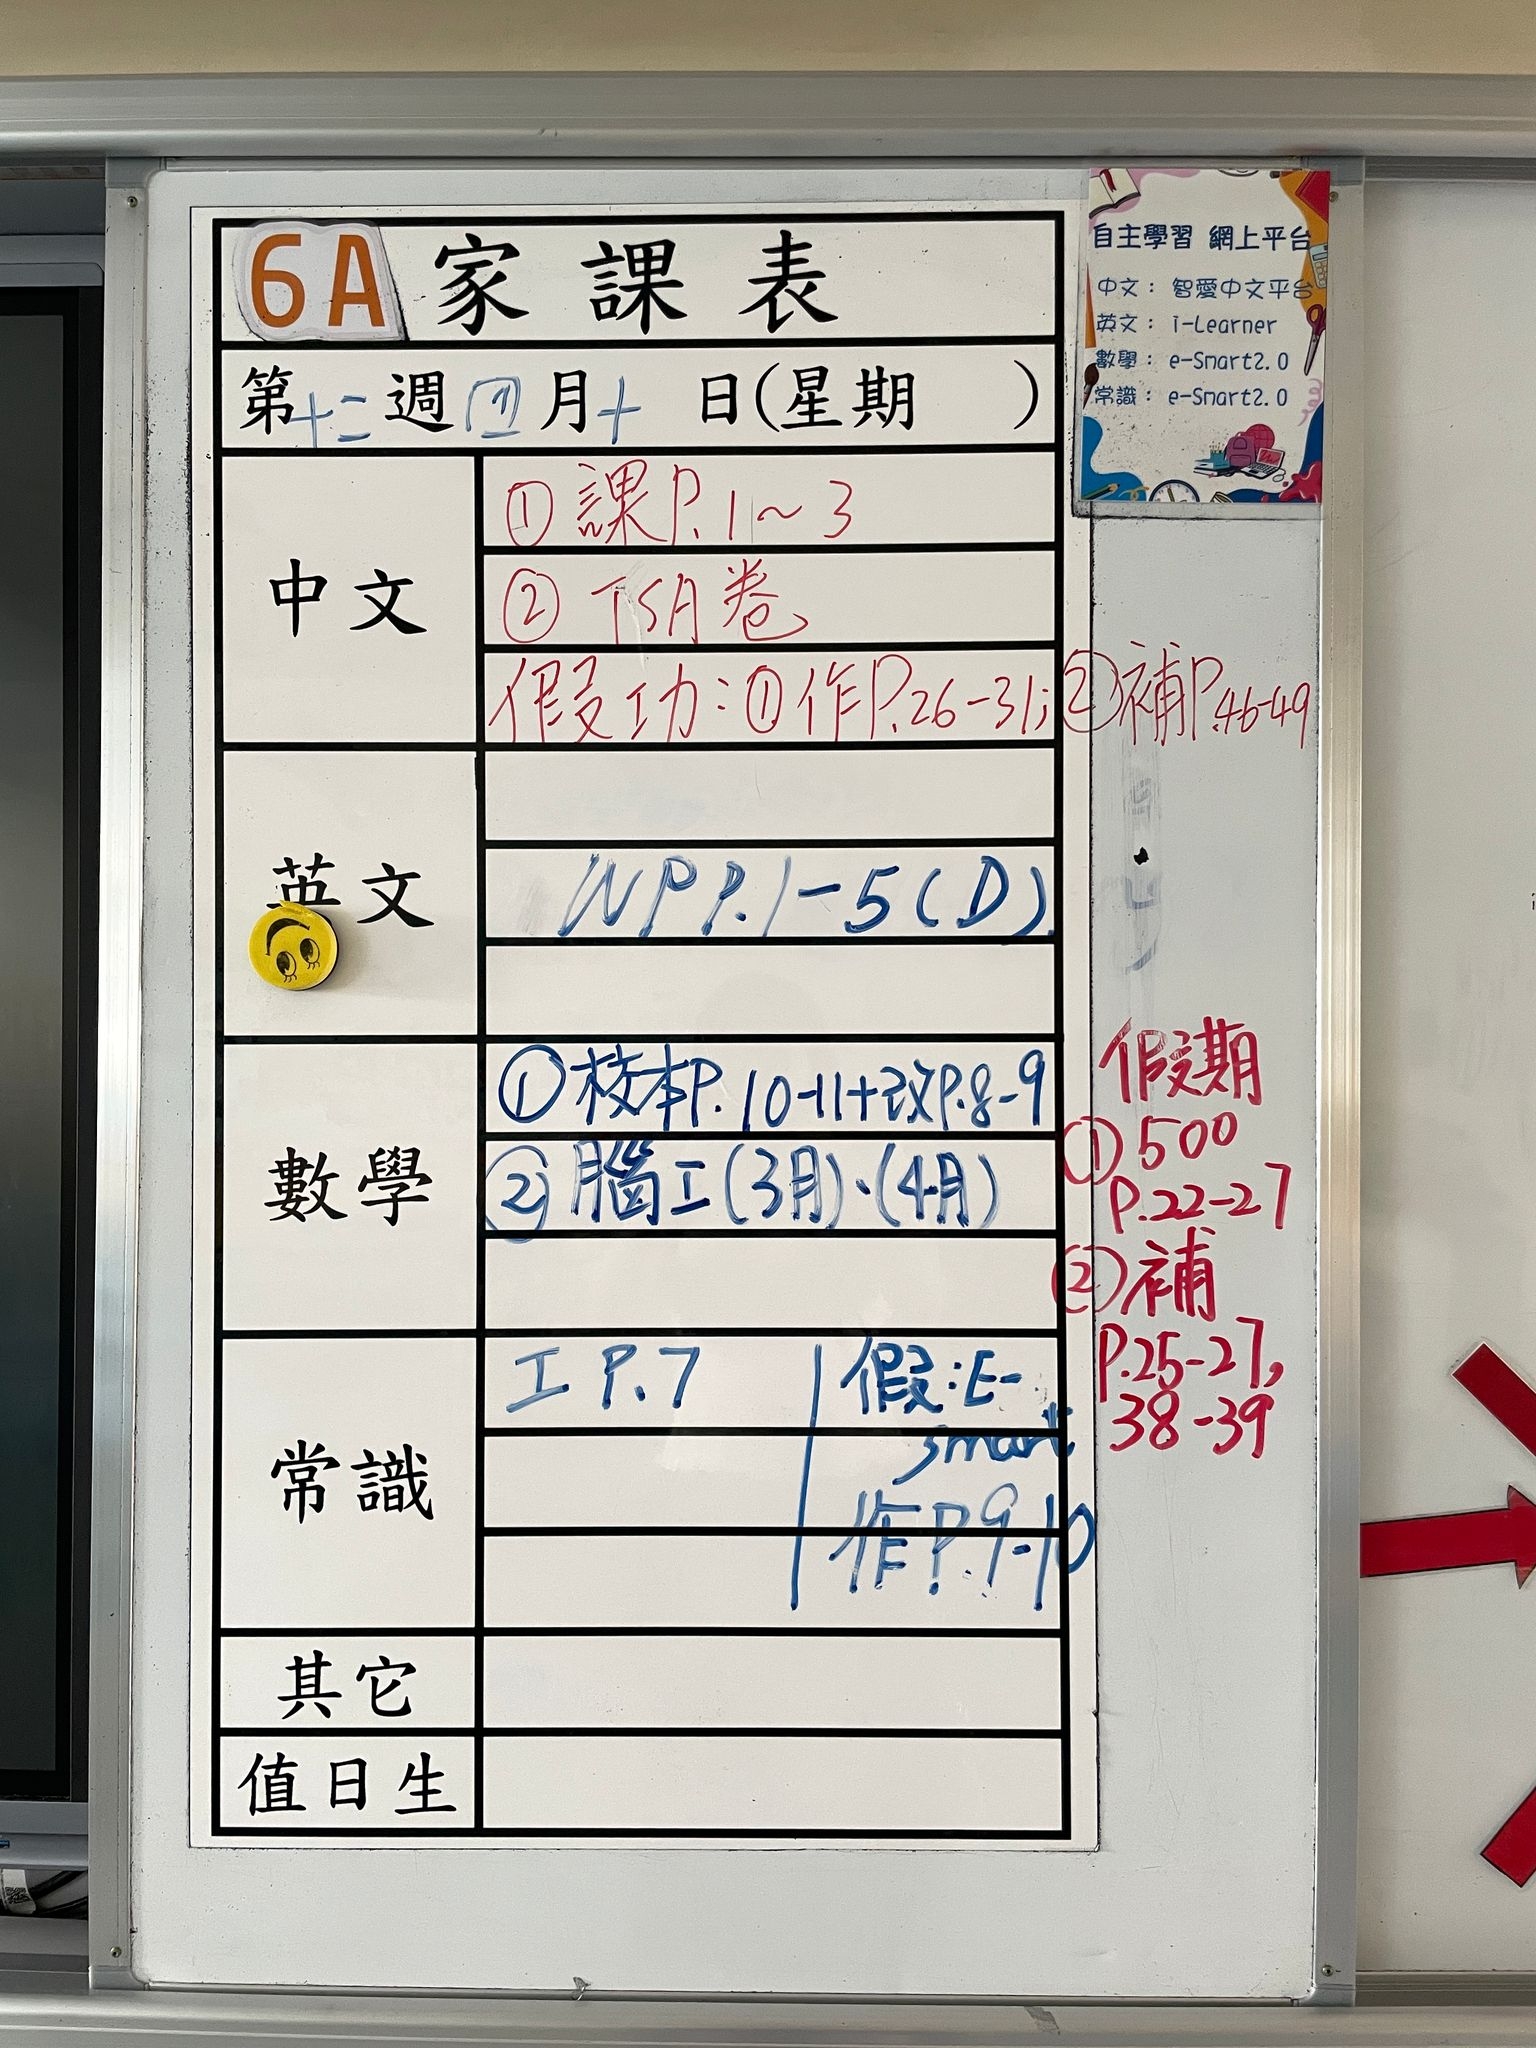 6A 家課表
第十二週四月十日(星期 )
中文
①課P.1~3
②TSA卷
假功:①作P.26-31;②補P.46-49
英文
WP P.1-5(D)
數學
①校本P.10-11+改P.8-9
②腦工(3月)、(4月)
常識
工 P.7
假:E-
smart
作P.9-10
其它
值日生
自主學習 網上平台
中文: 智愛中文平台
英文: i-Learner
數學: e-Smart2.0
常識: e-Smart2.0
假期
①500
P.22-27
②補
P.25-27,
38-39